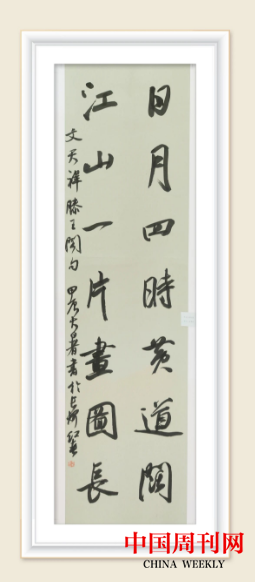 日月四時黄道闊
江山一片畫圖長
文天祥滕王閣句 甲辰大暑書於長沙
中国周刊网
CHINA WEEKLY